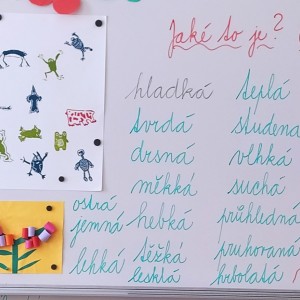 Jaké to je?
hladká teplá
tvrdá studená
drsná vlhká
měkká suchá
ostrá
jemná hebká průhledná
lehká těžká pruhovaná
lesklá hrbolatá